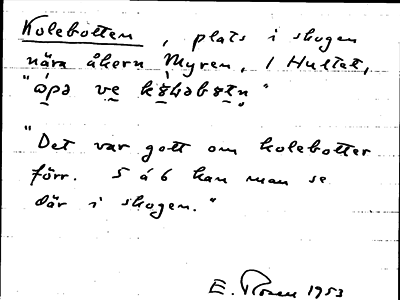 Kolebotten, plats i skogen
nära åkern Myren, i Hultet,
"ɷ̀pə ve kɷ̀ləbɷtn̥"
"Det var gott om kolebotter
förr. 5 á 6 kan man se
där i skogen."
E. Rosen 1953